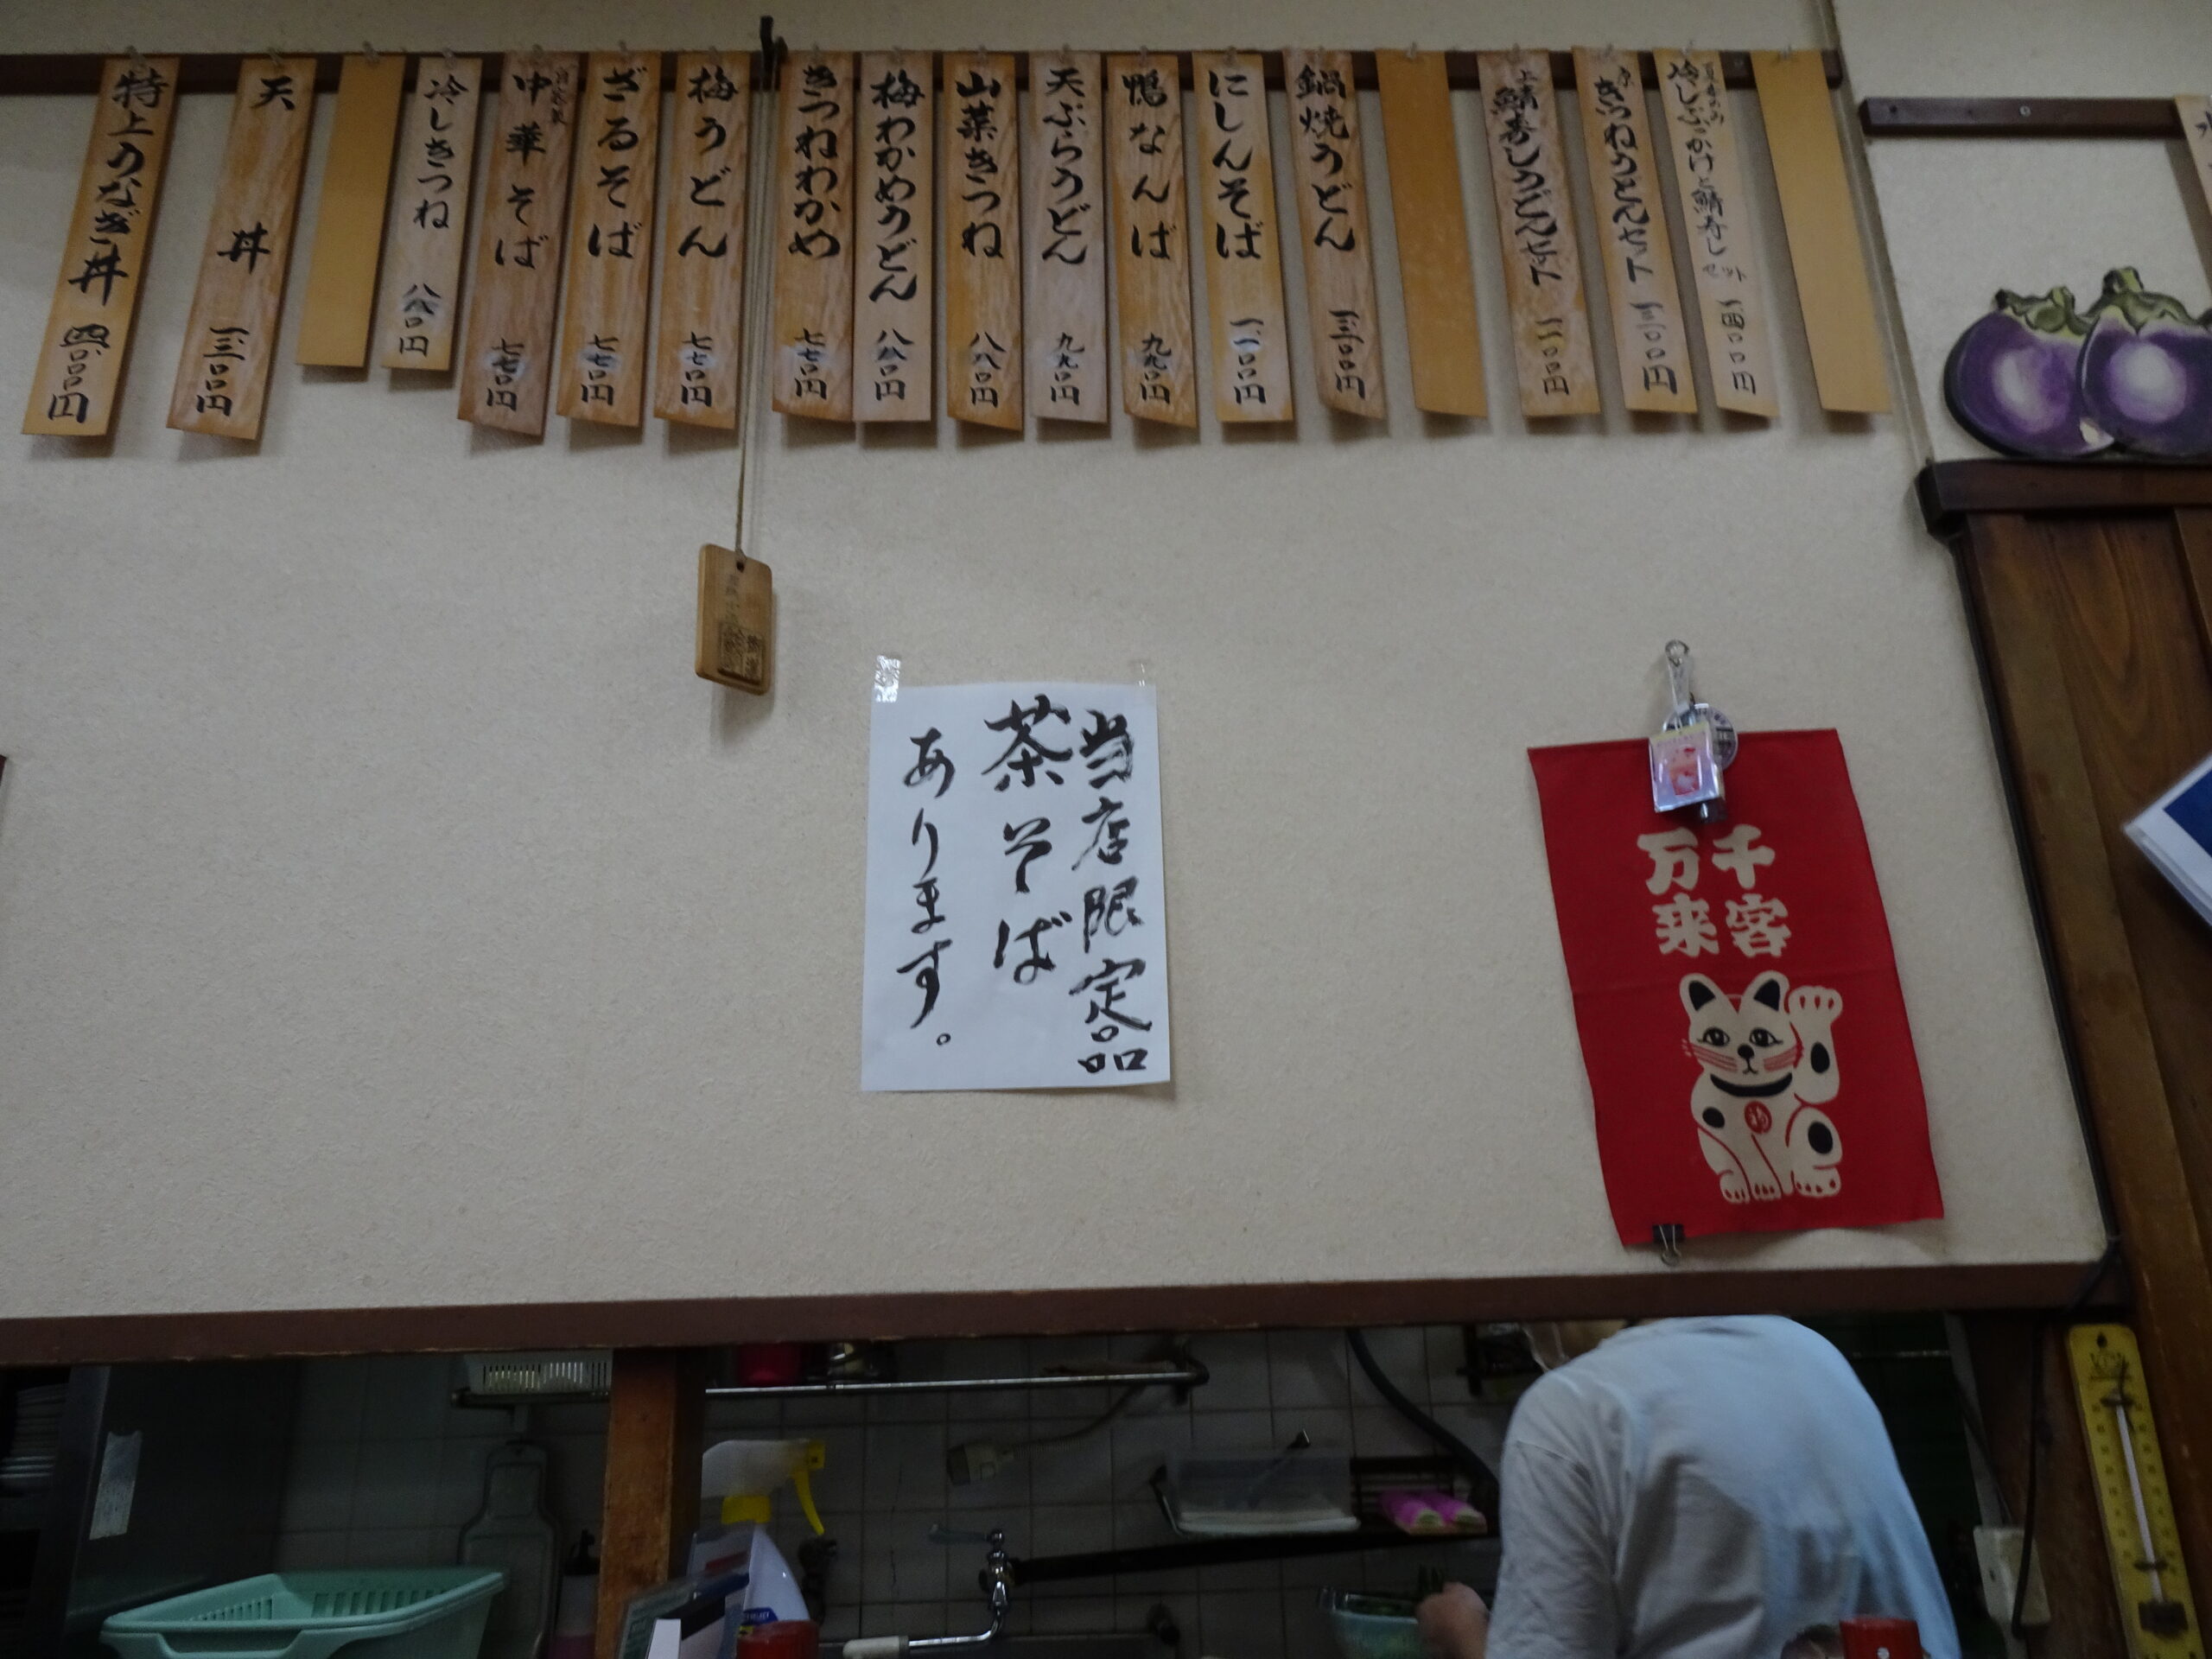 特上うなぎ丼 四、〇〇〇円
天丼 一、三〇〇円
冷しきつね 八八〇円
中華そば 七七〇円
ざるそば 七七〇円
梅うどん 七七〇円
きつねわかめ 七七〇円
梅わかめうどん 八八〇円
山菜きつね 八八〇円
天ぷらうどん 九九〇円
鴨なんば 九九〇円
にしんそば 一一〇〇円
鍋焼うどん 一、三〇〇円
上鯖寿しうどんセット 一一〇〇円
きつねうどんセット 一三〇〇円
冷しぶっかけと鯖寿しセット 一四〇〇円
当店限定品
茶そば
あります。
千客
万来